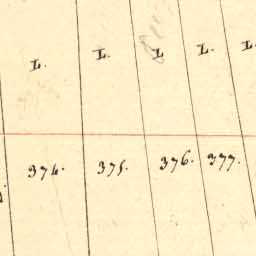 L. L. L L. L.
374. 375. 376. 377.